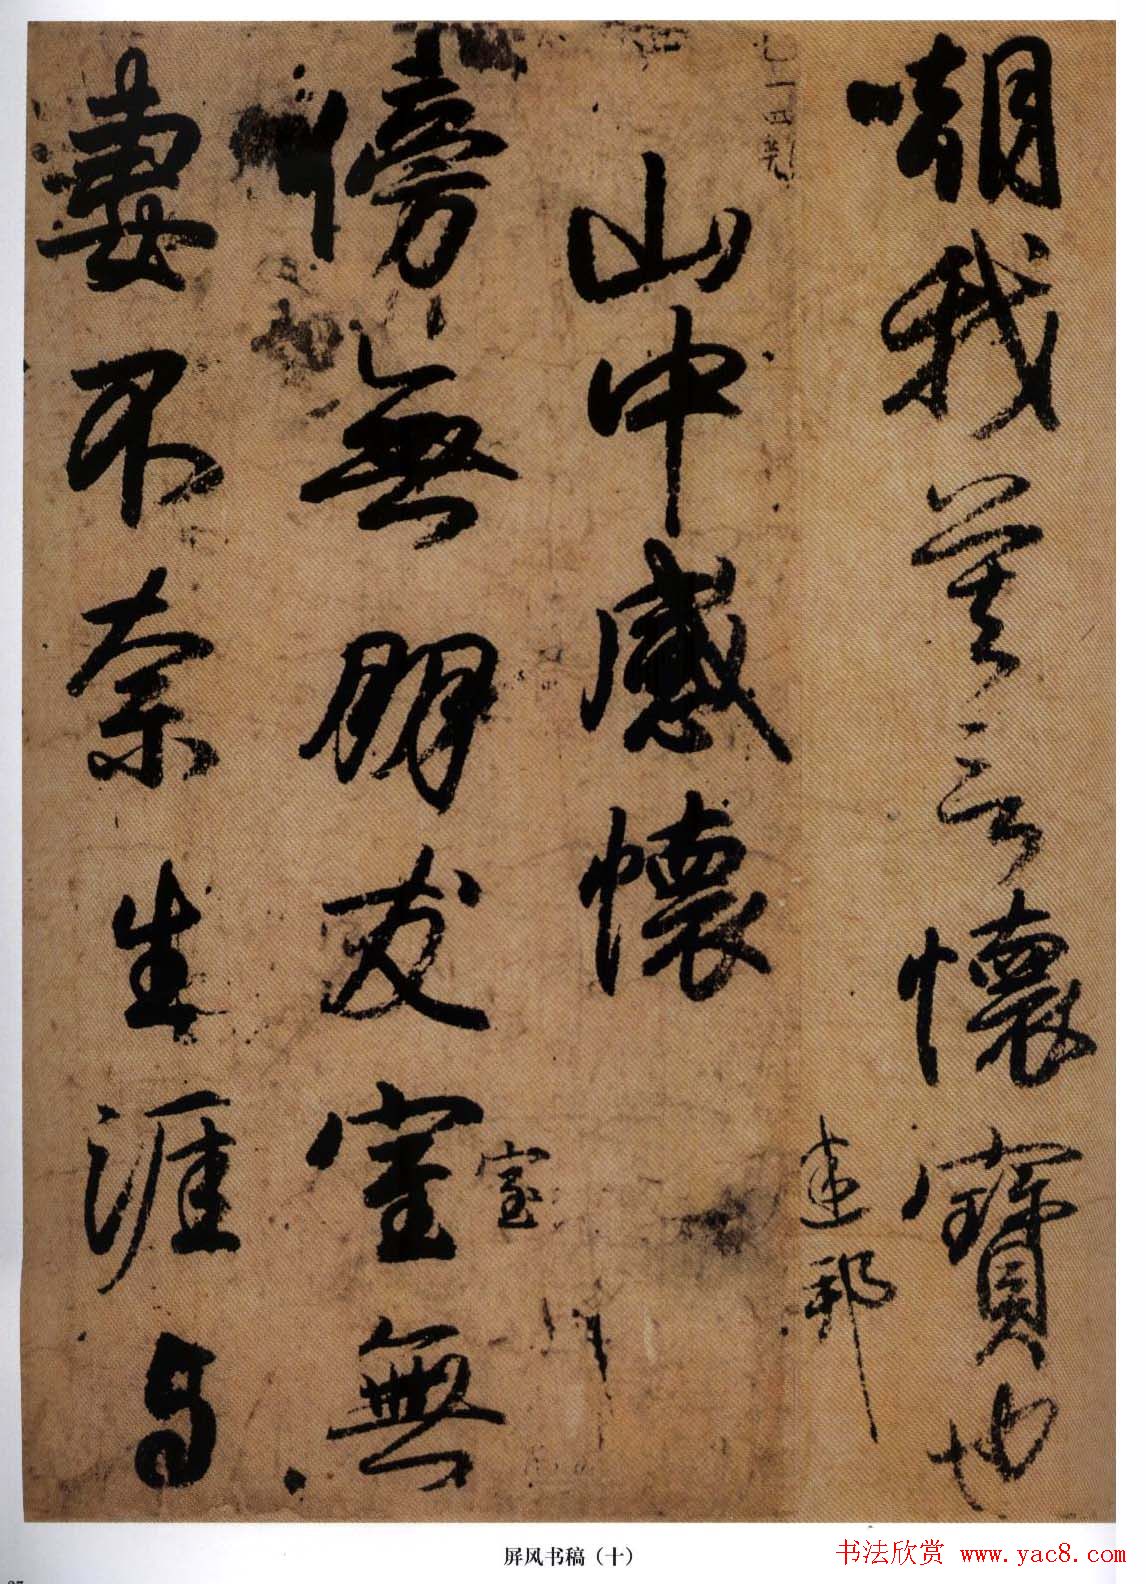 嘲我莫言懷寶也
邦
七一四
山中感懷
傍無朋友室無
室
妻不奈生涯与
屏风书稿（十）
书法欣赏 www.yac8.com